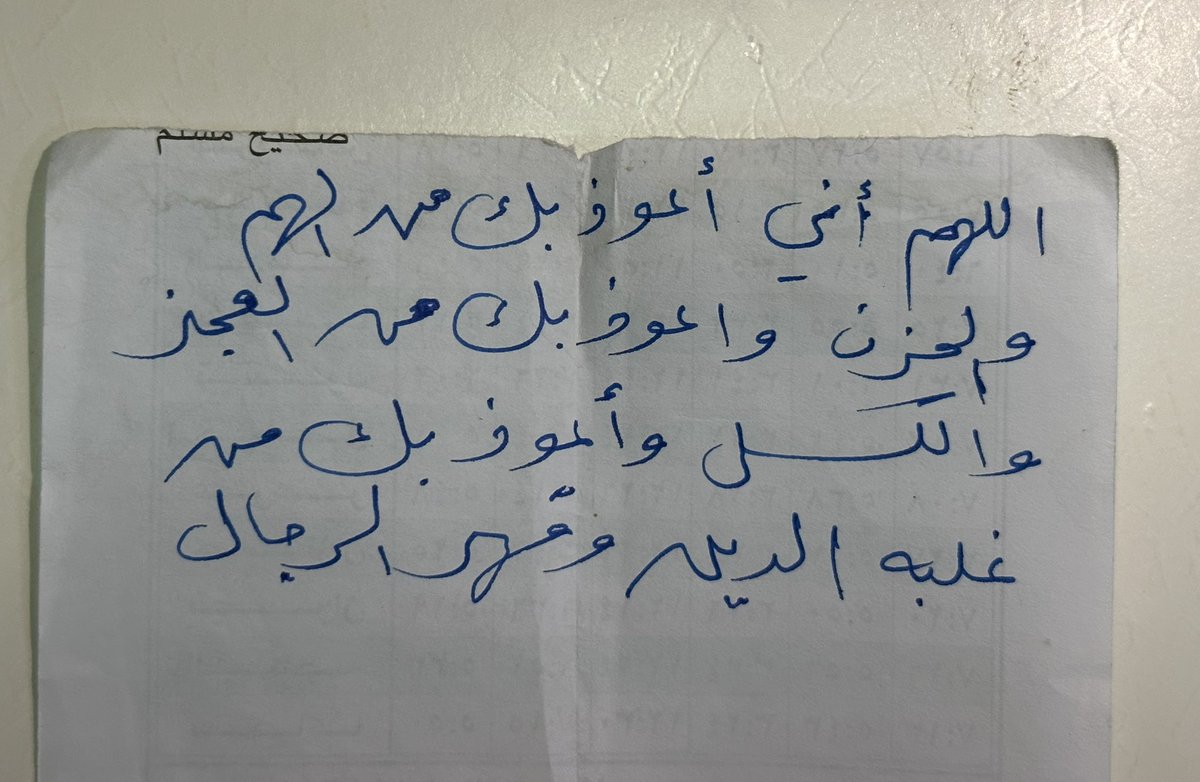 صحيح مسلم
اللهم أني أعوذ بك من الهم
والحزن واعوذ بك من العجز
والكسل وأعوذ بك من
غلبه الدين وقهر الرجال